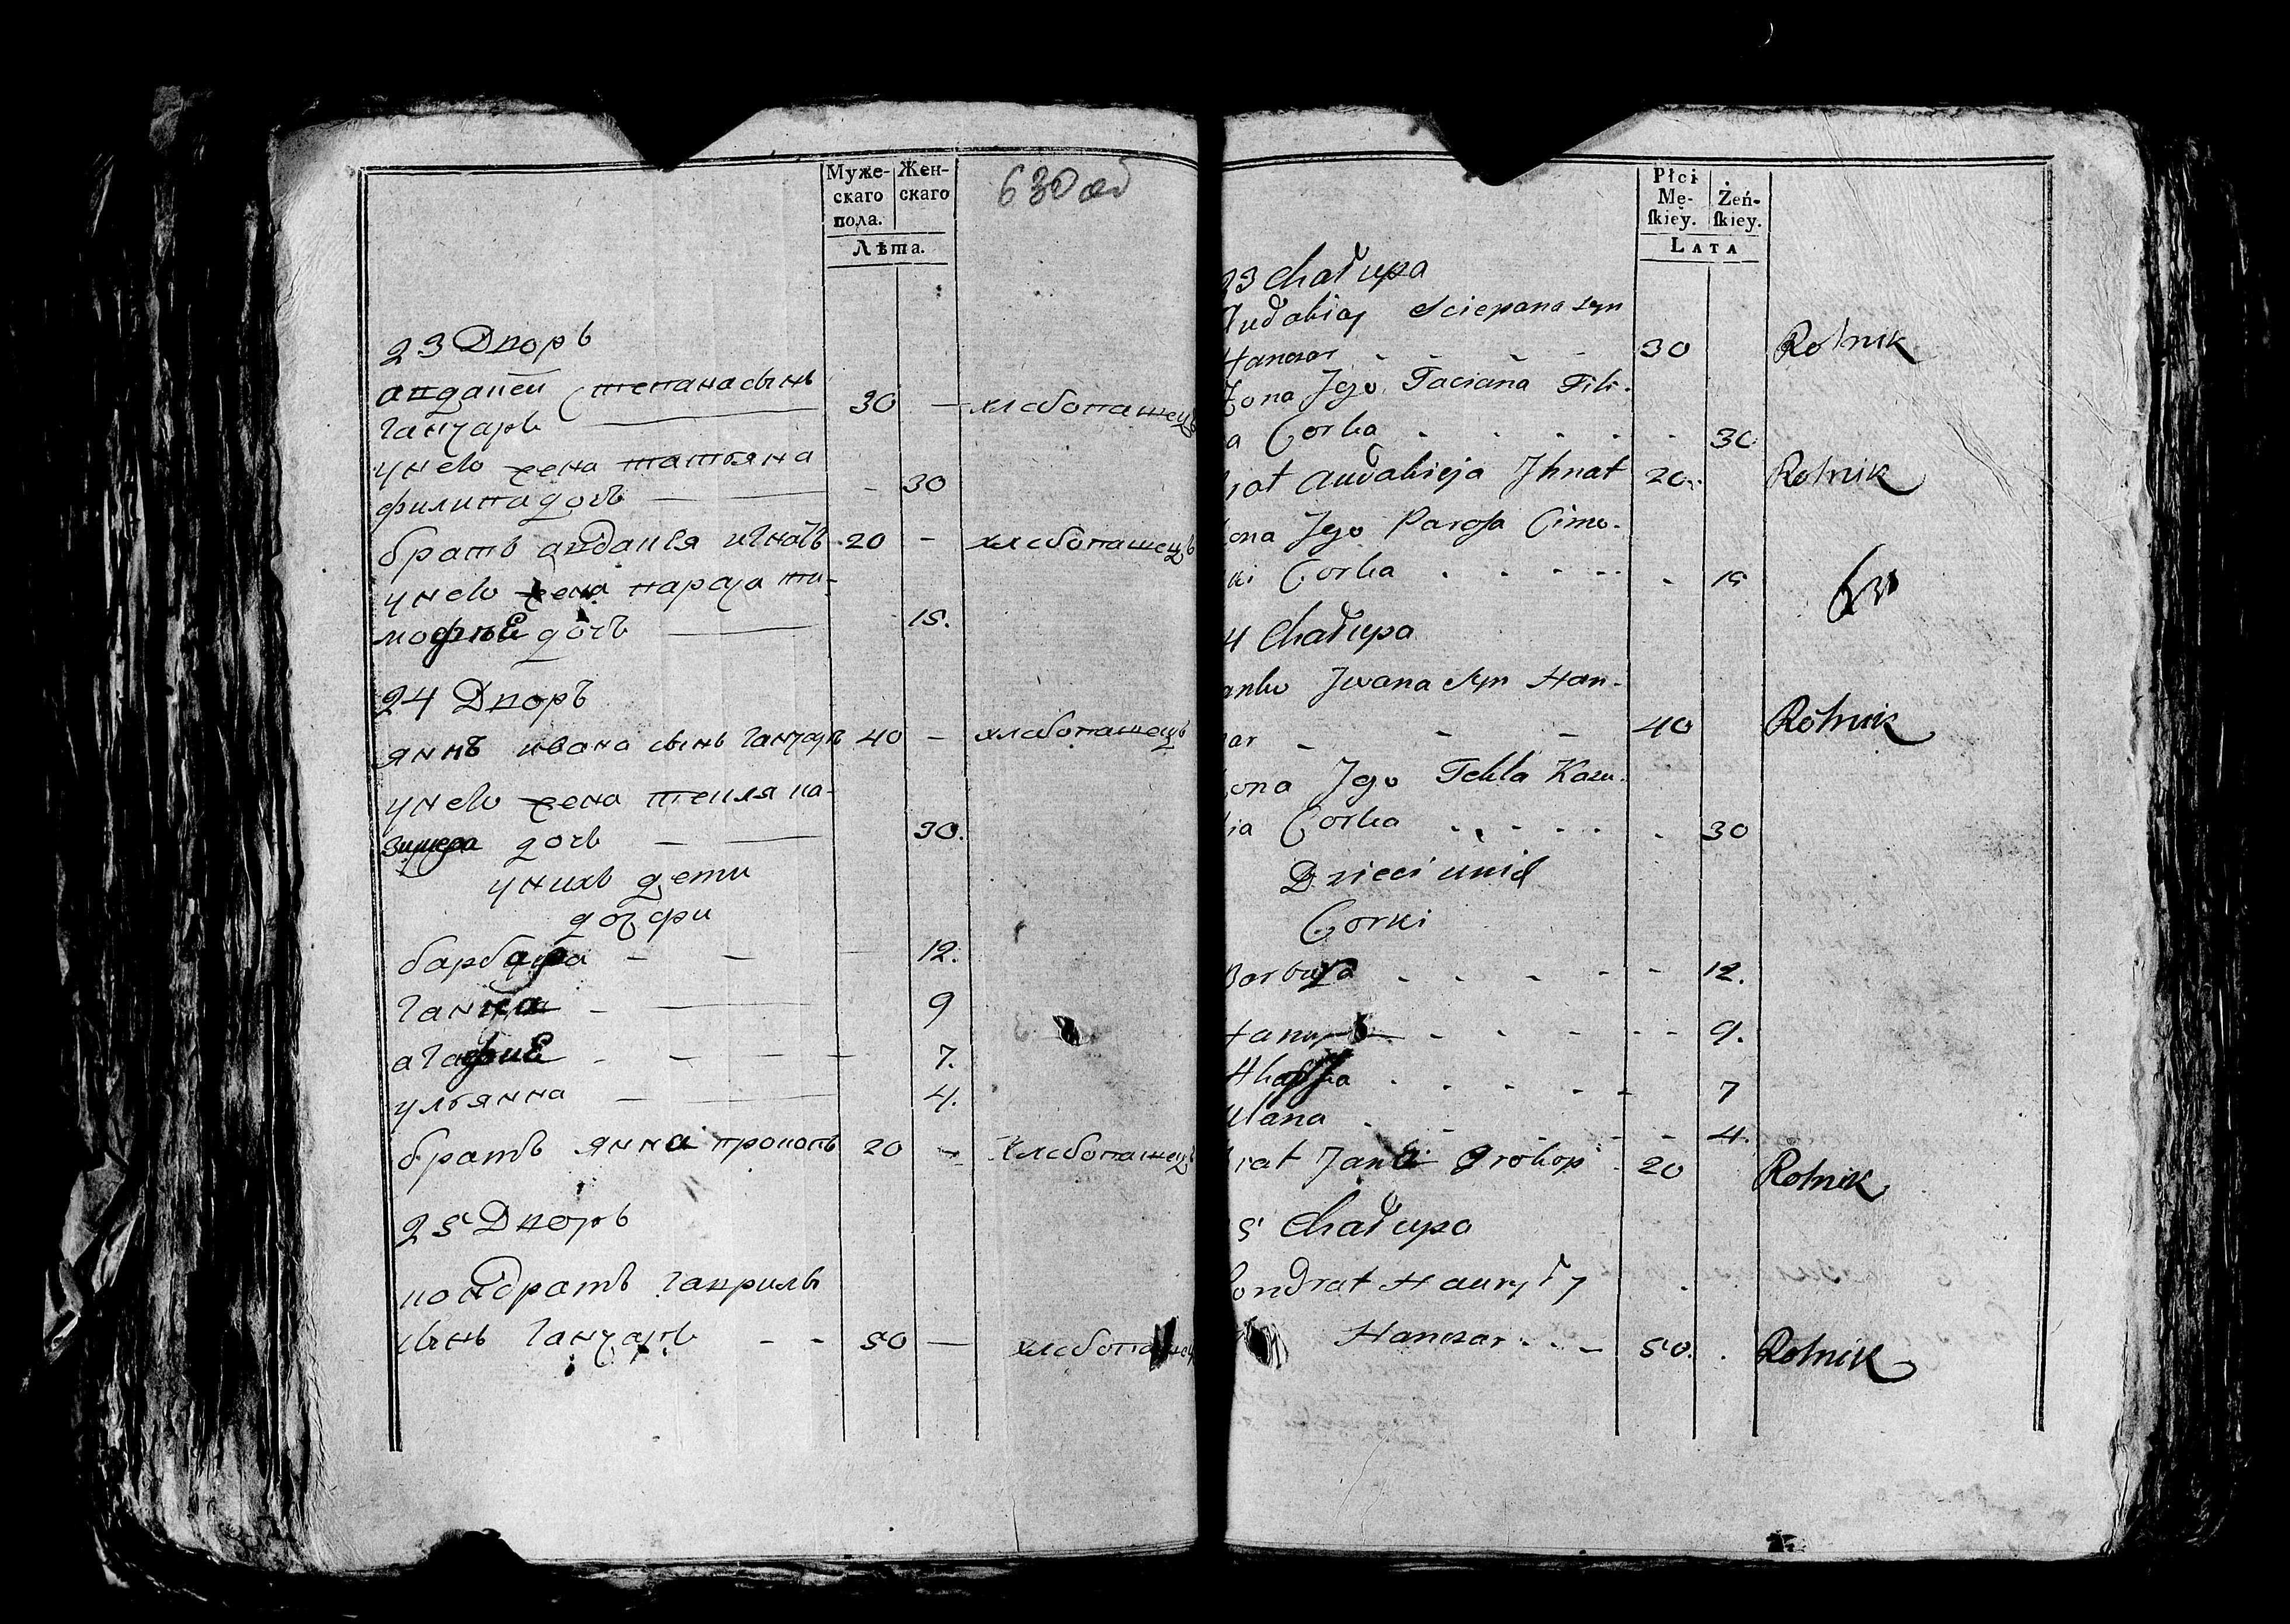 Муже-
скаго
пола.
Жен-
скаго
Лѣта.
23 Дворъ
авдавей степана сынъ
ганчаръ 30 — хлебопашецъ
унево жена татьяна
филипа дочь — 30
братъ авдавія игнатъ 20 — хлебопашецъ
унево жена парася ти-
мофие дочь 15.
24 Дворъ
янкъ ивана сынъ ганчаръ 40 — хлебопашецъ
унево жена текля ка-
зимера дочь — 30.
унихъ дети
дочери
барбара — — — 12.
ганна — — 9
агафие — — — — 7.
ульянна — — 4.
братъ янка прокопъ 20 — хлебопашецъ
25 Дворъ
кондратъ гаврилы
сынъ ганчаръ — — 50 — хлебопашец
Płci
Mę-
ſkiey.
Żeń-
ſkiey.
LATA
23 Chałupa
Audakiey Sciepana syn
Hanczar - - - - 30 Rolnik
Zona Jego Taciana Fili-
a Corka . . . . . 30
rat Audakieja Jhnat 20. Rolnik
ona Jego Parasia Cimo-
ki Corka . . . . . - 15
4 Chałupa
anko Jwana Syn Han-
zar - - - 40 Rolnik
ona Jego Tekla Kazi-
ia Corka . . . . . . 30
Dzieci unich
Corki
Barbara . . - - - 12.
Hanna . - - - - 9.
Ahafia . . . . - 7
Ulana . - - - - 4.
rat Janki Prokop 20 Rolnik
5 Chałupa
Kondrat Hauryły
Hanczar . . - 50. . Rolnik